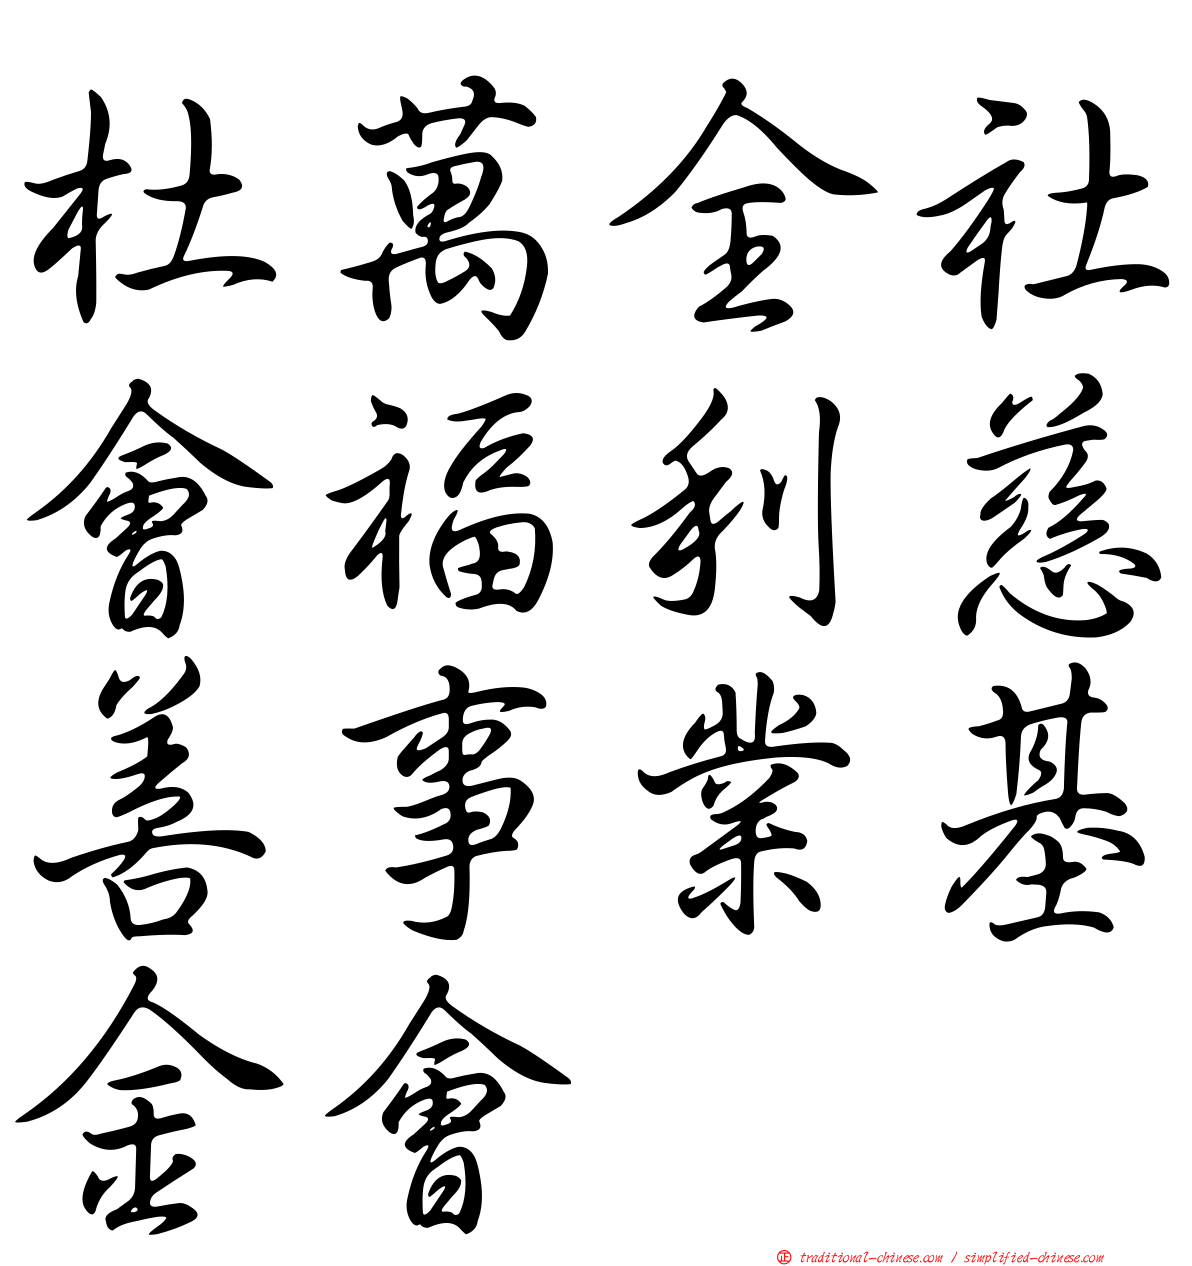 杜萬全社
會福利慈
善事業基
金會
正 traditional-chinese.com / simplified-chinese.com